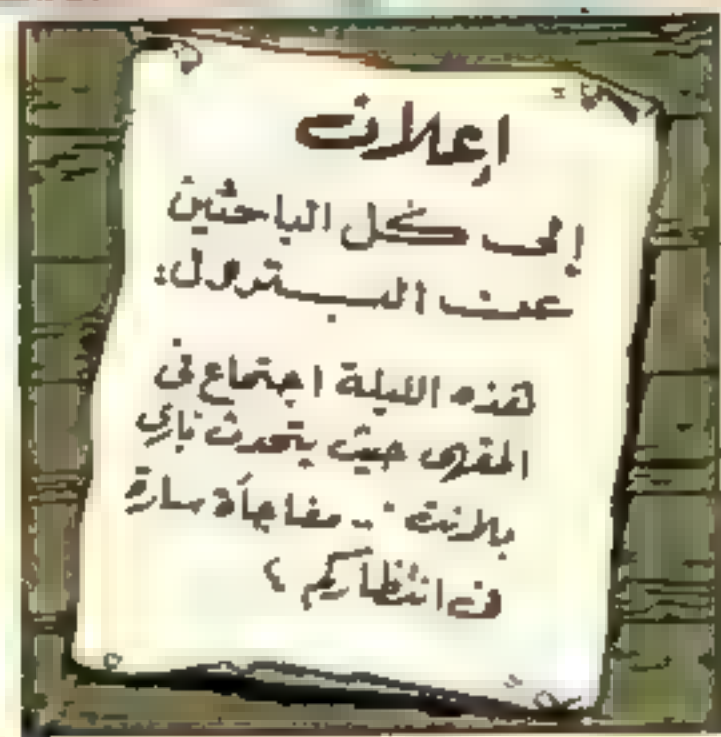 إعلان
إلى كل الباحثين
عن البترول:
هذه الليلة اجتماع فى
المقهى حيث يتحدث "بارى
بلانت" .. مفاجأة سارة
فى انتظاركم !